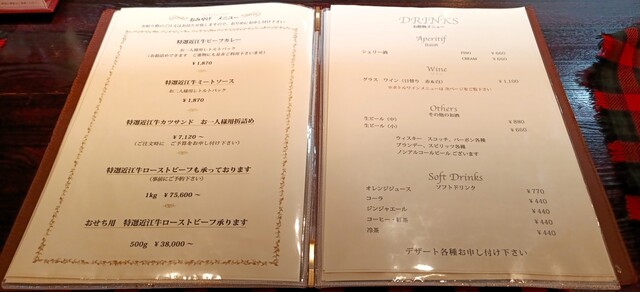 おみやげ メニュー
特選近江牛ビーフカレー
お一人様用レトルトパック
¥1,870
特選近江牛ミートソース
お二人様用レトルトパック
¥1,870
特選近江牛カツサンド お一人様用折詰め
¥7,120～
(ご注文時に ご予算をお申し付け下さい)
特選近江牛ローストビーフも承っております
(事前にご予約下さい)
1kg ¥75,600～
おせち用 特選近江牛ローストビーフ承ります
500g ¥38,000～
DRINKS
お飲物メニュー
Aperitif
食前酒
シェリー酒
¥660
¥660
Wine
グラス ワイン (日替り 赤&白) ¥1,100
※ボトルワインメニューは次ページをご覧下さい
Others
その他のお酒
生ビール (中) ¥880
生ビール (小) ¥660
ウィスキー スコッチ、バーボン各種
ブランデー、スピリッツ各種
ノンアルコールビール ございます
Soft Drinks
ソフトドリンク
オレンジジュース ¥770
コーラ ¥440
ジンジャエール ¥440
コーヒー・紅茶 ¥440
冷茶 ¥440
デザート各種お申し付け下さい